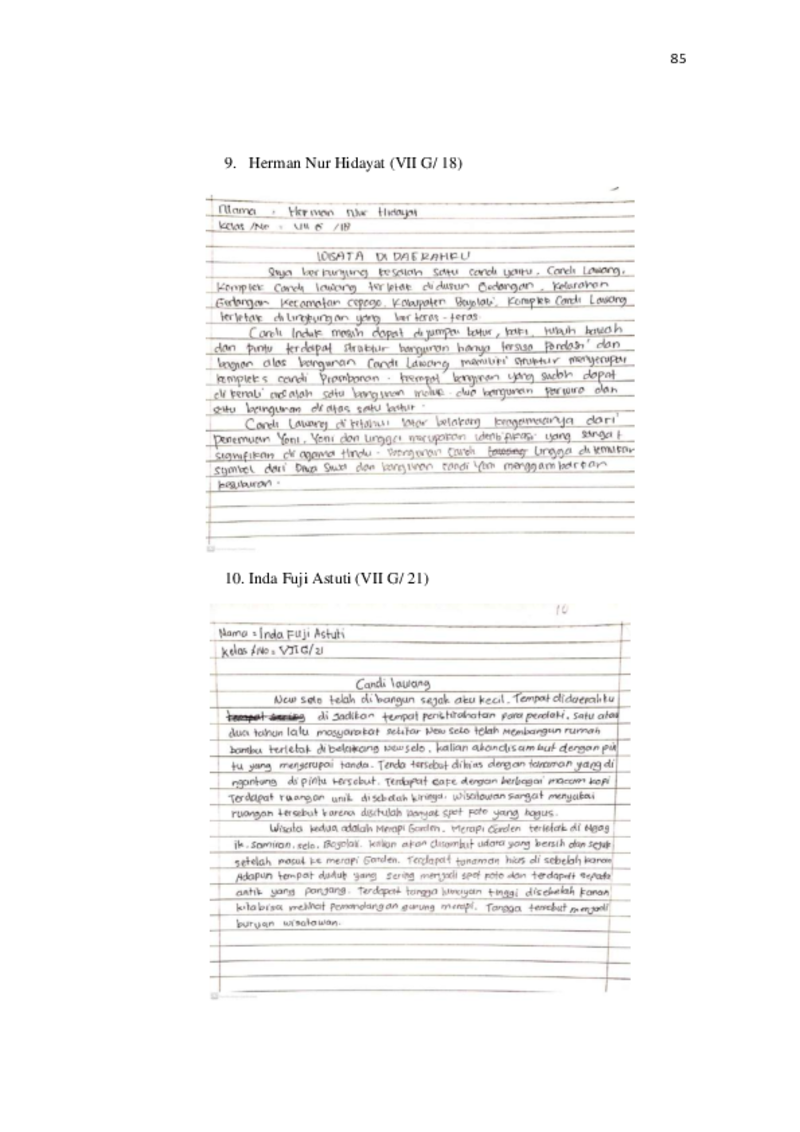 85
9. Herman Nur Hidayat (VII G/ 18)
Nama : Herman Nur Hidayat
Kelas /No : VII G /18
WISATA DI DAERAHKU
Saya berkunjung kesalah satu candi yaitu. Candi Lawang.
Komplek Candi lawang terletak didusun Gedangan, Kelurahan
Gedangan Kecamatan cepogo, Kabupaten Boyolali. Komplek Candi Lawang
terletak dilingkungan yang berteras-teras.
Candi Induk masih dapat dijumpai batur, kaki, tubuh bawah
dan pintu terdapat struktur bangunan hanya tersisa Pondasi dan
bagian atas bangunan Candi Lawang memiliki struktur menyerupai
kompleks candi Prambanan. bangunan yang sudah dapat
di kenali adalah satu bangunan induk dua bangunan perwira dan
satu bangunan di atas satu batur.
Candi Lawang di ketahui latar belakang keagamaanya dari
penemuan Yoni, Yoni dan lingga merupakan identifikasi yang sangat
signifikan di agama Hindu. Bangunan Candi Lingga di temukan
symbol dari Dewa Siwa dan bangunan candi Yoni menggambarkan
kesuburan.
10. Inda Fuji Astuti (VII G/ 21)
10
Nama : Inda Fuji Astuti
Kelas /No : VII G/21
Candi lawang
New selo telah di bangun sejak aku kecil. Tempat didaerahku
di jadikan tempat peristirahatan para pendaki, satu atau
dua tahun lalu masyarakat sekitar New selo telah membangun rumah
bambu terletak di belakang Newselo, kalian akandisambut dengan pin
tu yang menyerupai tenda. Tenda tersebut dihias dengan tanaman yang di
ngantung di pintu tersebut. Terdapat cafe dengan berbagai macam kopi
Terdapat ruangan unik disebelah kirinya. Wisatawan sangat menyukai
ruangan tersebut karena disitulah banyak spot foto yang bagus.
Wisata kedua adalah Merapi Garden. Merapi Garden terletak di Ngag
ik. Samiran, selo, Boyolali. kalian akan disambut udara yang bersih dan sejuk
setelah masuk ke merapi Garden. Terdapat tanaman hias di sebelah kanan
Adapun tempat duduk yang sering menjadi spot foto dan terdapat sepeda
antik yang panjang. Terdapat tangga lumayan tinggi disebelah kanan
kitabisa melihat pemandangan gunung merapi. Tangga tersebut menjadi
buruan wisatawan.